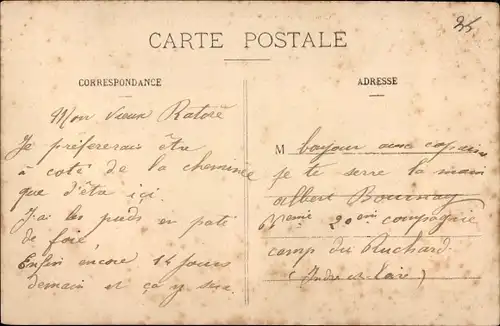 24
CARTE POSTALE
CORRESPONDANCE
Mon vieux
Je préfererais être
à coté de la cheminée
que d'être ici
J'ai les pieds en paté
de foie,
Enfin encore 14 jours
demain et ça y sera
ADRESSE
M bonjour aux copains
je te serre la main
albert Bournay
20eme compagnie
camp du Ruchard.
(Indre et Loire)